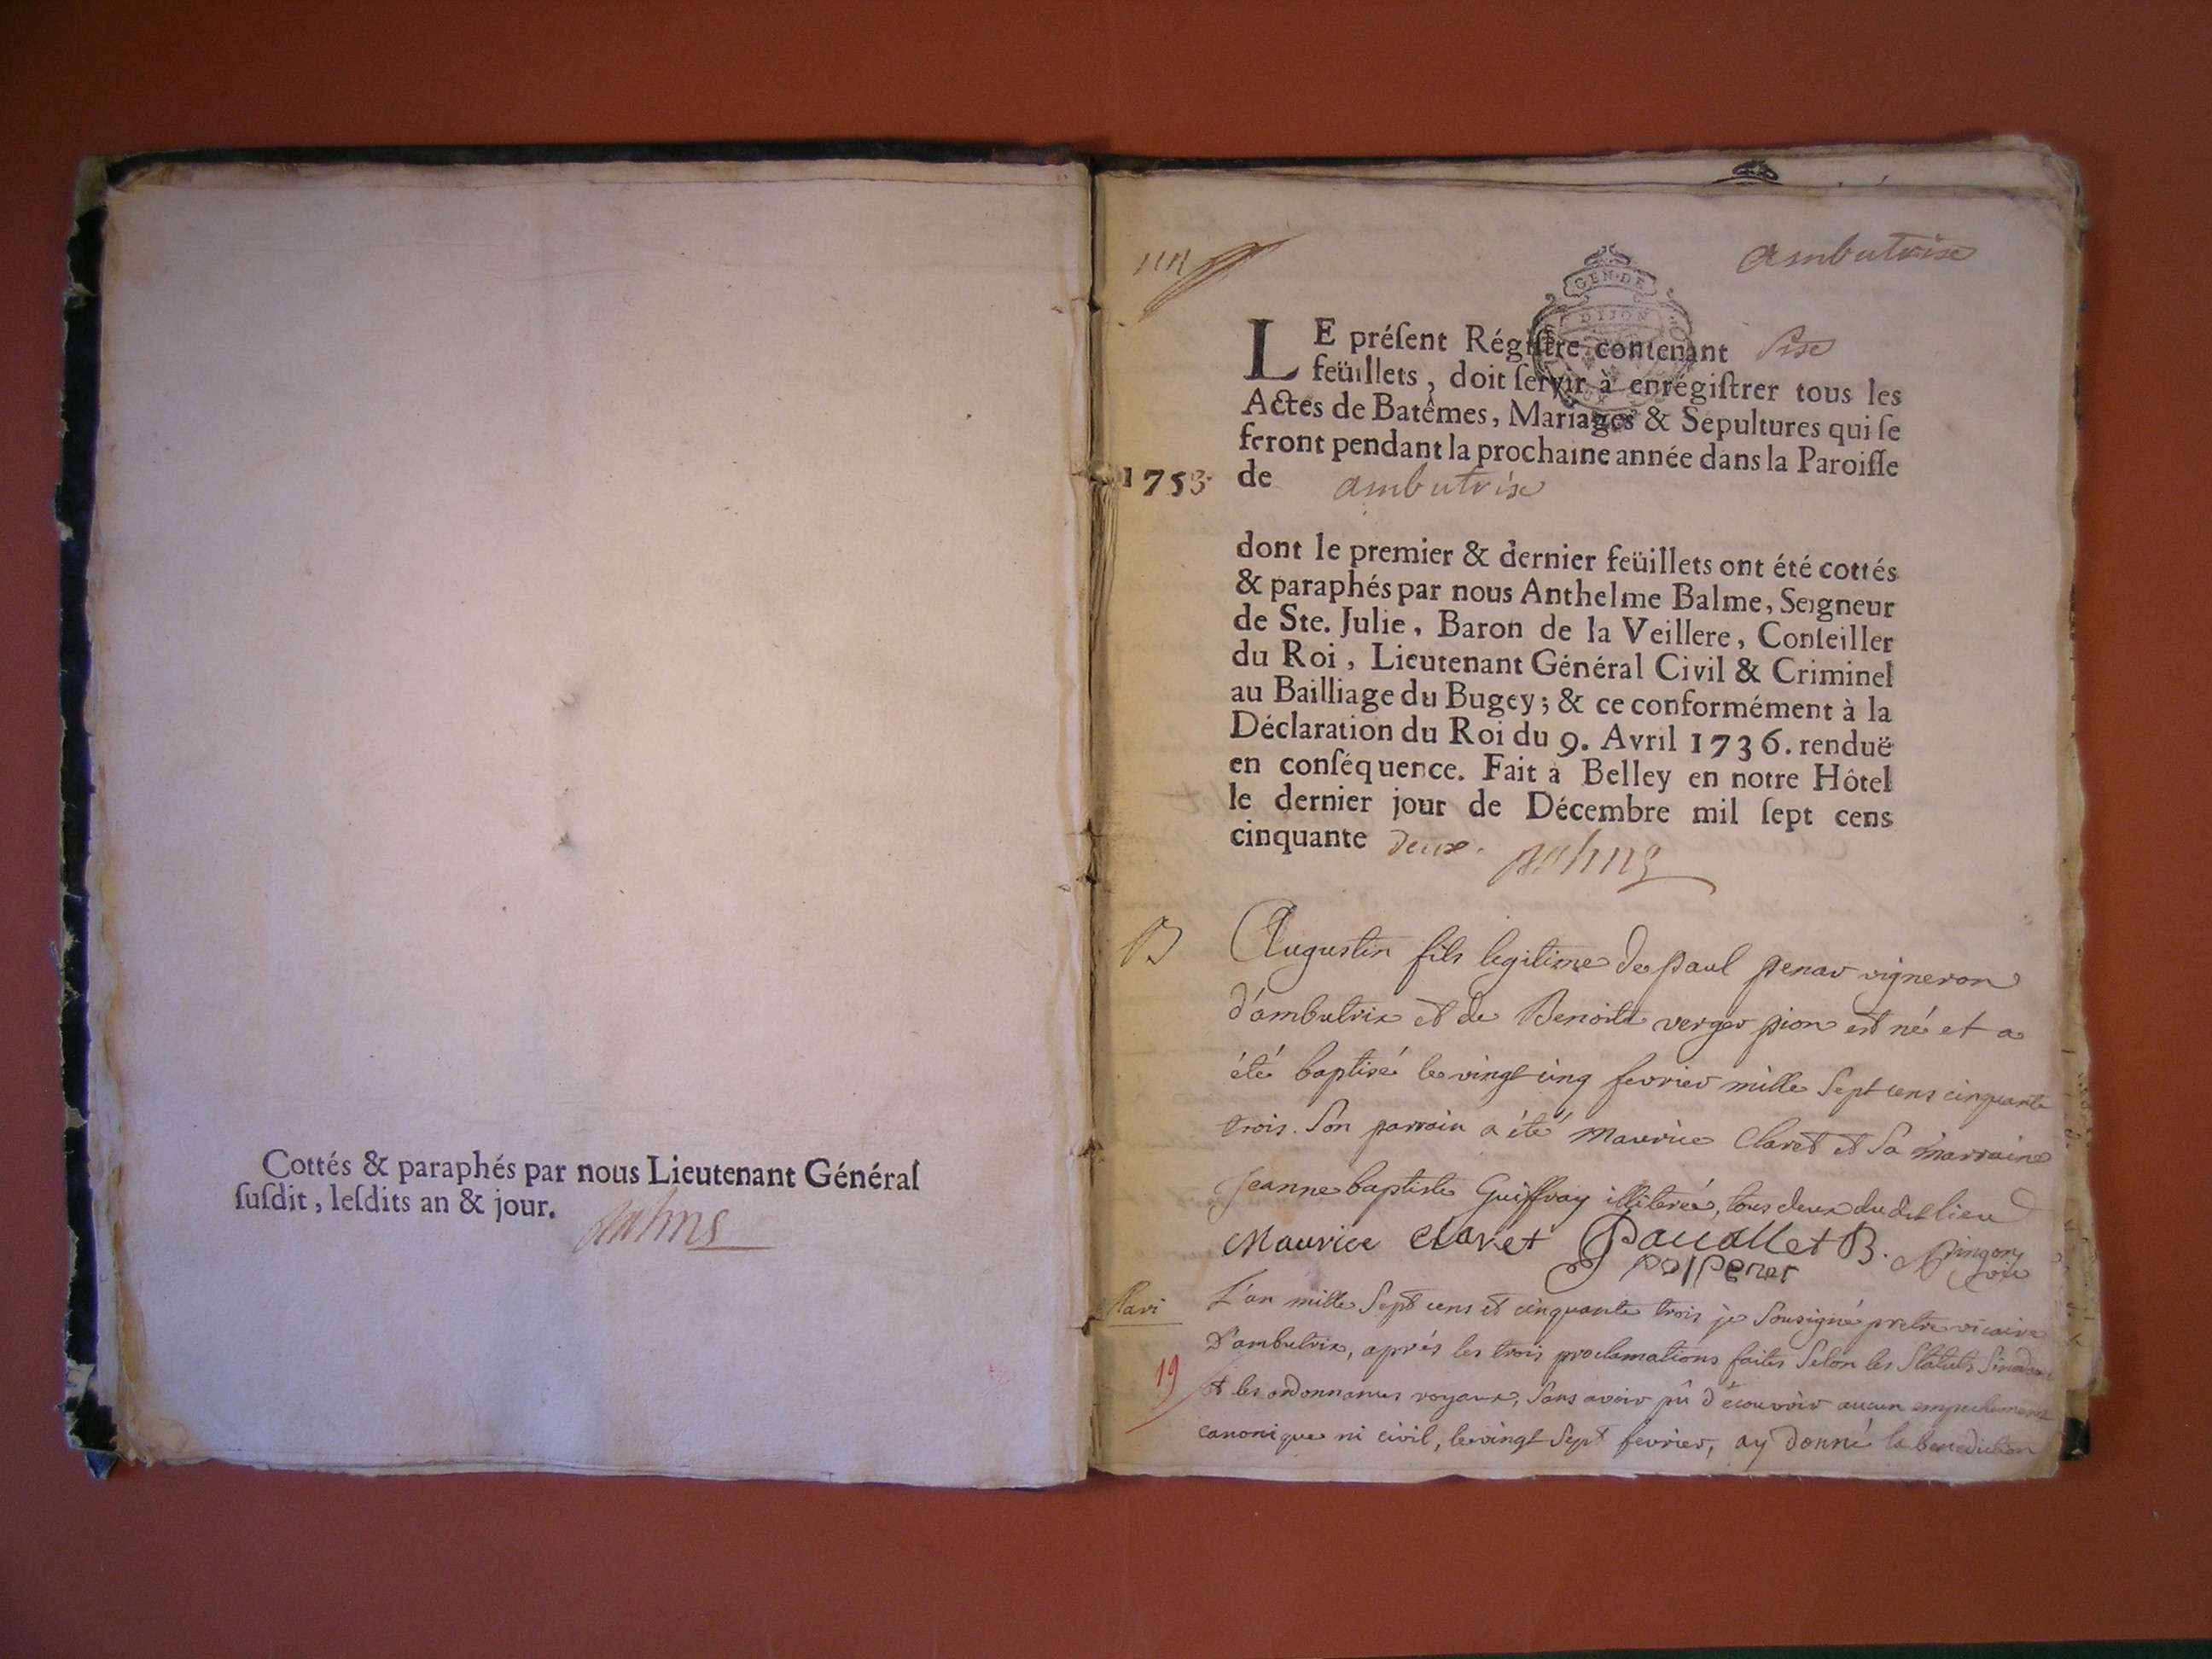 Cottés & paraphés par nous Lieutenant Général
ſuſdit, leſdits an & jour.
ambutrix
GEN·DE
DIJON
LE préſent Régiſtre contenant six
feüillets, doit ſervir à enrégiſtrer tous les
Actes de Batêmes, Mariages & Sepultures qui ſe
feront pendant la prochaine année dans la Paroiſſe
1753 de ambutrix
dont le premier & dernier feüillets ont été cottés
& paraphés par nous Anthelme Balme, Seigneur
de Ste. Julie, Baron de la Veillere, Conſeiller
du Roi, Lieutenant Général Civil & Criminel
au Bailliage du Bugey; & ce conformément à la
Déclaration du Roi du 9. Avril 1736. renduë
en conſéquence. Fait à Belley en notre Hôtel
le dernier jour de Décembre mil ſept cens
cinquante deux.
B Augustin fils legitime de paul penar vigneron
d'ambutrix et de Benoite verger pion est né et a
été baptisé le vingt cinq fevrier mille sept cens cinquante
trois. Son parrain a été Maurice Claret et sa marraine
Jeanne baptiste Guiffray illiterée, tous deux dudit lieu
Maurice Claret Paucallet B.
pol pener
L'an mille sept cens et cinquante trois je sousigné pretre vicaire
D'ambutrix, aprés les trois proclamations faites selon les Statuts
19 et les ordonnances royaux, sans avoir pû découvrir aucun empechement
canonique ni civil, le vingt sept fevrier, ay donné la benediction